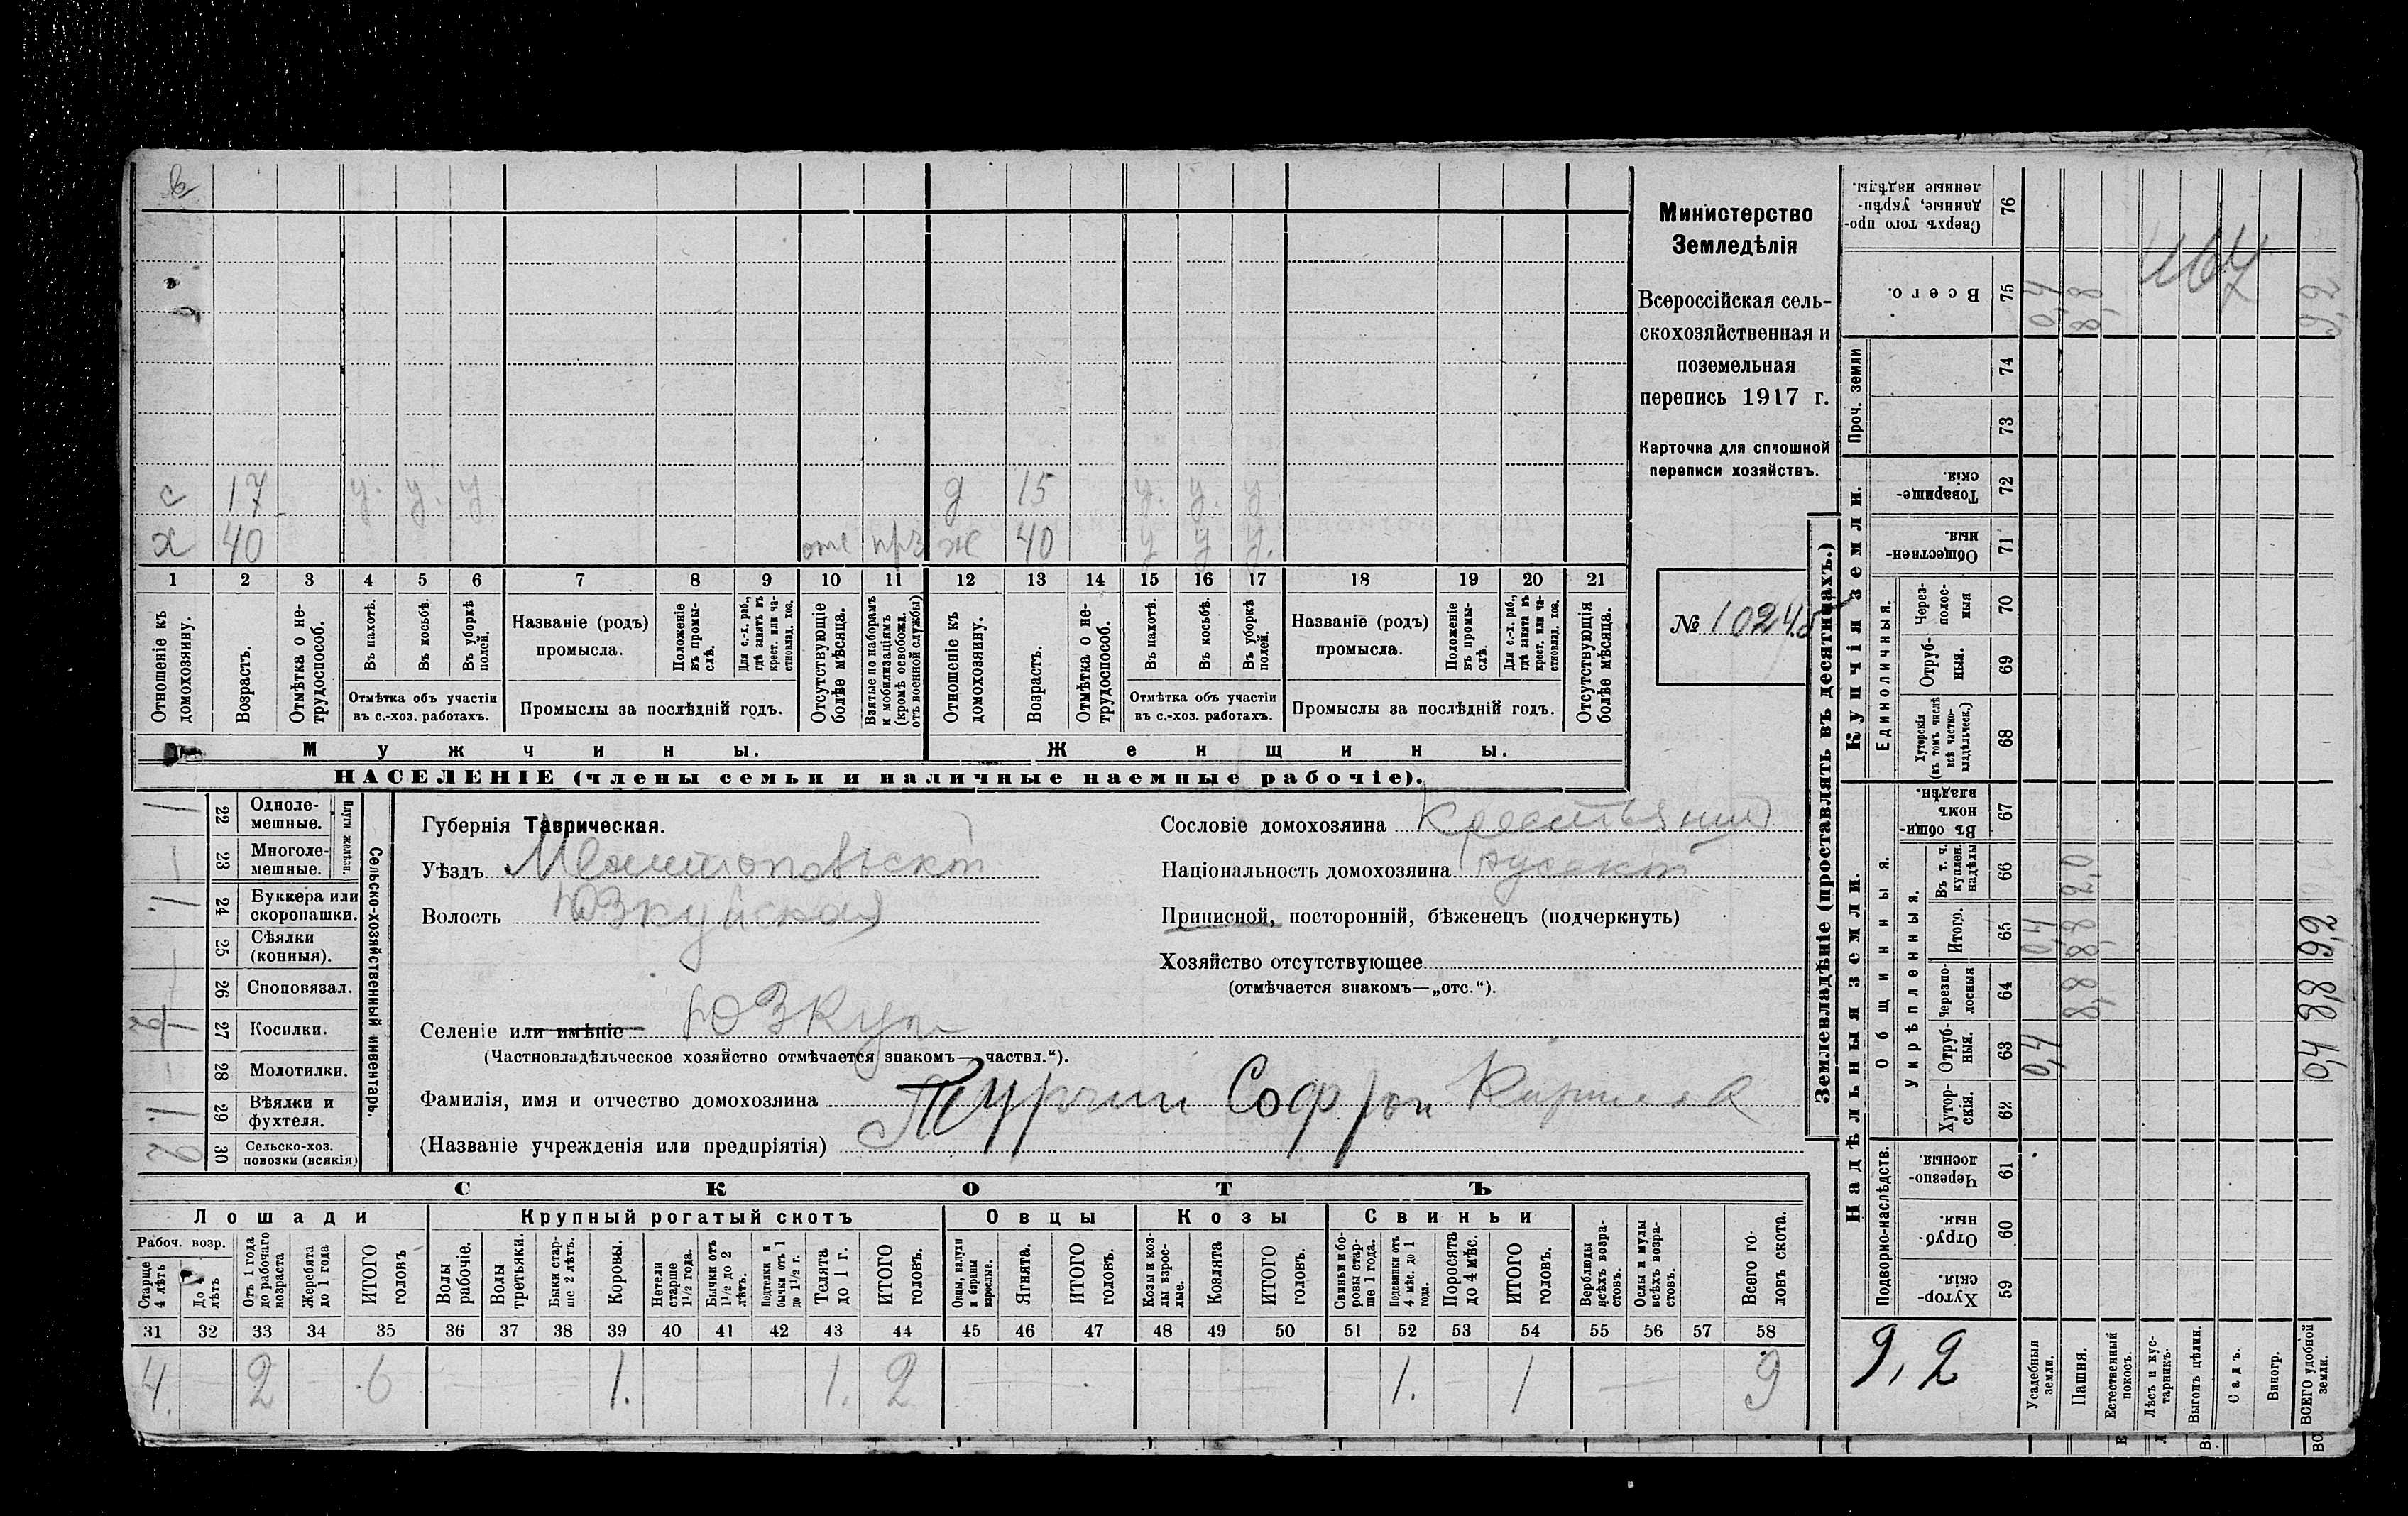 с 17 у. у. у. д 15 у. у. у.
х 40 отс прз ж 40 у у у.
1 2 3 4 5 6 7 8 9 10 11 12 13 14 15 16 17 18 19 20 21
Отношеніе къ домохозяину.
Возрастъ.
Отмѣтка о не-
трудоспособ.
Въ пахотѣ.
Въ косьбѣ.
Въ уборкѣ
полей.
Отмѣтка объ участіи
въ с.-хоз. работахъ.
Названіе (родъ)
промысла.
Положеніе
въ промы-
слѣ.
Для с.-х. раб.,
гдѣ занятъ въ
крест. или ча-
стновлад. хоз.
Промыслы за послѣдній годъ.
Отсутствующіе
болѣе мѣсяца.
Взятые по наборамъ
и мобилизаціямъ
(кромѣ освобожд.
отъ военной службы)
Отношеніе къ
домохозяину.
Возрастъ.
Отмѣтка о не-
трудоспособ.
Въ пахотѣ.
Въ косьбѣ.
Въ уборкѣ
полей.
Отмѣтка объ участіи
въ с.-хоз. работахъ.
Названіе (родъ)
промысла.
Положеніе
въ промы-
слѣ.
Для с.-х. раб.,
гдѣ занята въ
крест. или ча-
стновлад. хоз.
Промыслы за послѣдній годъ.
Отсутствующія
болѣе мѣсяца.
Мужчины.
Женщины.
НАСЕЛЕНІЕ (члены семьи и наличные наемные рабочіе).
Министерство
Земледѣлія
Всероссійская сель-
скохозяйственная и
поземельная
перепись 1917 г.
Карточка для сплошной
переписи хозяйствъ.
№ 10245
1 22 Одноле-
мешные.
– 23 Многоле-
мешные.
Плуги желѣзн.
1 24 Буккера или
скоропашки.
– 25 Сѣялки
(конныя).
– 26 Сноповязал.
27 Косилки.
– 28 Молотилки.
1 29 Вѣялки и
фухтеля.
2 30 Сельско-хоз.
повозки (всякія)
Сельско-хозяйственный инвентарь.
Губернія Таврическая.
Уѣздъ Мелитопольскій
Волость Юзкуйская
Селеніе или имѣніе Юзкуи
(Частновладѣльческое хозяйство отмѣчается знакомъ—„частвл.“).
Фамилія, имя и отчество домохозяина Турчин Софрон Кирилов
(Названіе учрежденія или предпріятія)
Сословіе домохозяина Крестьянин
Національность домохозяина Русскій
Приписной, посторонній, бѣженецъ (подчеркнуть)
Хозяйство отсутствующее
(отмѣчается знакомъ—„отс.“).
СКОТЪ
Лошади Крупный рогатый скотъ Овцы Козы Свиньи
Рабоч. возр.
Старще
4 лѣтъ
До 4
лѣтъ
Отъ 1 года
до рабочаго
возраста
Жеребята
до 1 года
ИТОГО
головъ
Волы
рабочіе.
Волы
третьяки.
Быки стар-
ше 2 лѣтъ.
Коровы.
Нетели
старше
1½ года.
Бычки отъ
1½ до 2
лѣтъ.
Подтелки и
бычки отъ 1
до 1½ г.
Телята
до 1 г.
ИТОГО
головъ.
Овцы, валухи
и бараны
взрослые.
Ягнята.
ИТОГО
головъ.
Козы и коз-
лы взрос-
лые.
Козлята
ИТОГО
головъ.
Свиньи и бо-
ровы стар-
ше 1 года.
Подсвинки отъ
4 мѣс. до 1
года.
Поросята
до 4 мѣс.
ИТОГО
головъ.
Верблюды
всѣхъ возра-
стовъ.
Ослы и мулы
всѣхъ возра-
стовъ.
Всего го-
ловъ скота.
31 32 33 34 35 36 37 38 39 40 41 42 43 44 45 46 47 48 49 50 51 52 53 54 55 56 57 58
4. 2 6 1. 1. 2 1. 1 9
Землевладѣніе (проставлять въ десятинахъ.)
Надѣльныя земли. Купчія земли. Проч. земли
Подворно-наслѣдств. Общинныя. Единоличныя.
Укрѣпленныя.
Хутор-
скія. 59
Отруб-
ныя. 60
Черезпо-
лосныя. 61
Хутор-
скія. 62
Отруб-
ныя. 63
Черезпо-
лосныя 64
Итого. 65
Въ т. ч.
куплен.
надѣлы 66
Въ общи-
номъ
владѣн. 67
Хуторскія
(въ томъ числѣ
всѣ частно-
владѣльческ.) 68
Отруб-
ныя. 69
Через-
полос-
ныя 70
Обществен-
ныя. 71
Товарище-
скія. 72
73
74
Всего. 75
Сверхъ того про-
данные, укрѣп-
ленные надѣлы. 76
9,2
Усадебныя
земли. 0,4 0,4 0,4
Пашня. 8,8 8,8 2,0 8,8
Естественный
покосъ.
Лѣсъ и кус-
тарникъ.
Выгонъ цѣлин.
Садъ.
Виногр.
ВСЕГО удобной
земли. 0,4 8,8 9,2 9,2
467